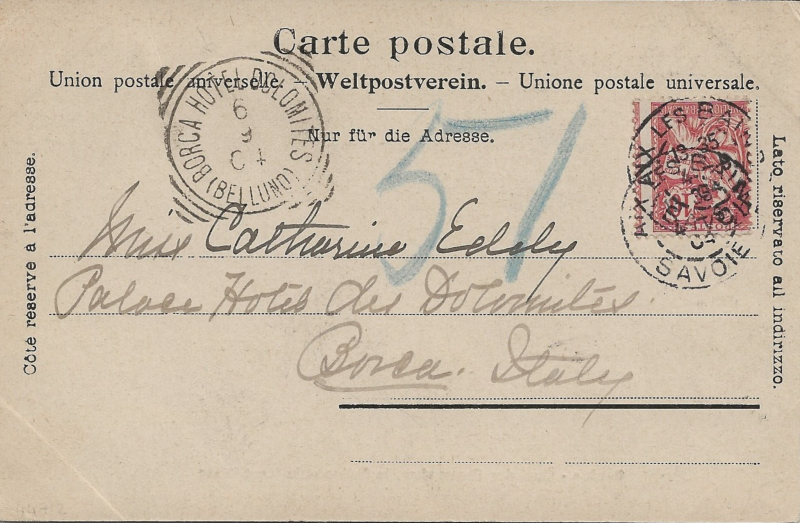 Carte postale.
Union postale universelle. — Weltpostverein. — Unione postale universale.
Nur für die Adresse.
Côté reservé à l'adresse.
Lato riservato all indirizzo.
BORCA HOTEL DOLOMITES
6
9
04
(BELLUNO)
AIX LES BAINS
SAVOIE
51
Miss Catharine Eddy
Palace Hotel des Dolomites
Borca. Italy